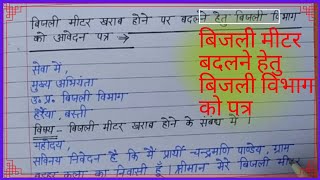 बिजली मीटर खराब होने पर बदलने हेतु बिजली विभाग
को आवेदन पत्र
सेवा में,
मुख्य अभियंता
उ. प्र. बिजली विभाग
हर्रैया, बस्ती
विषय - बिजली मीटर खराब होने के संबंध में ।
महोदय,
सविनय निवेदन है कि मैं प्रार्थी चन्द्रमणि पाण्डेय, ग्राम
कला का निवासी हूँ। श्रीमान मेरे बिजली मीटर
बिजली मीटर
बदलने हेतु
बिजली विभाग
को पत्र